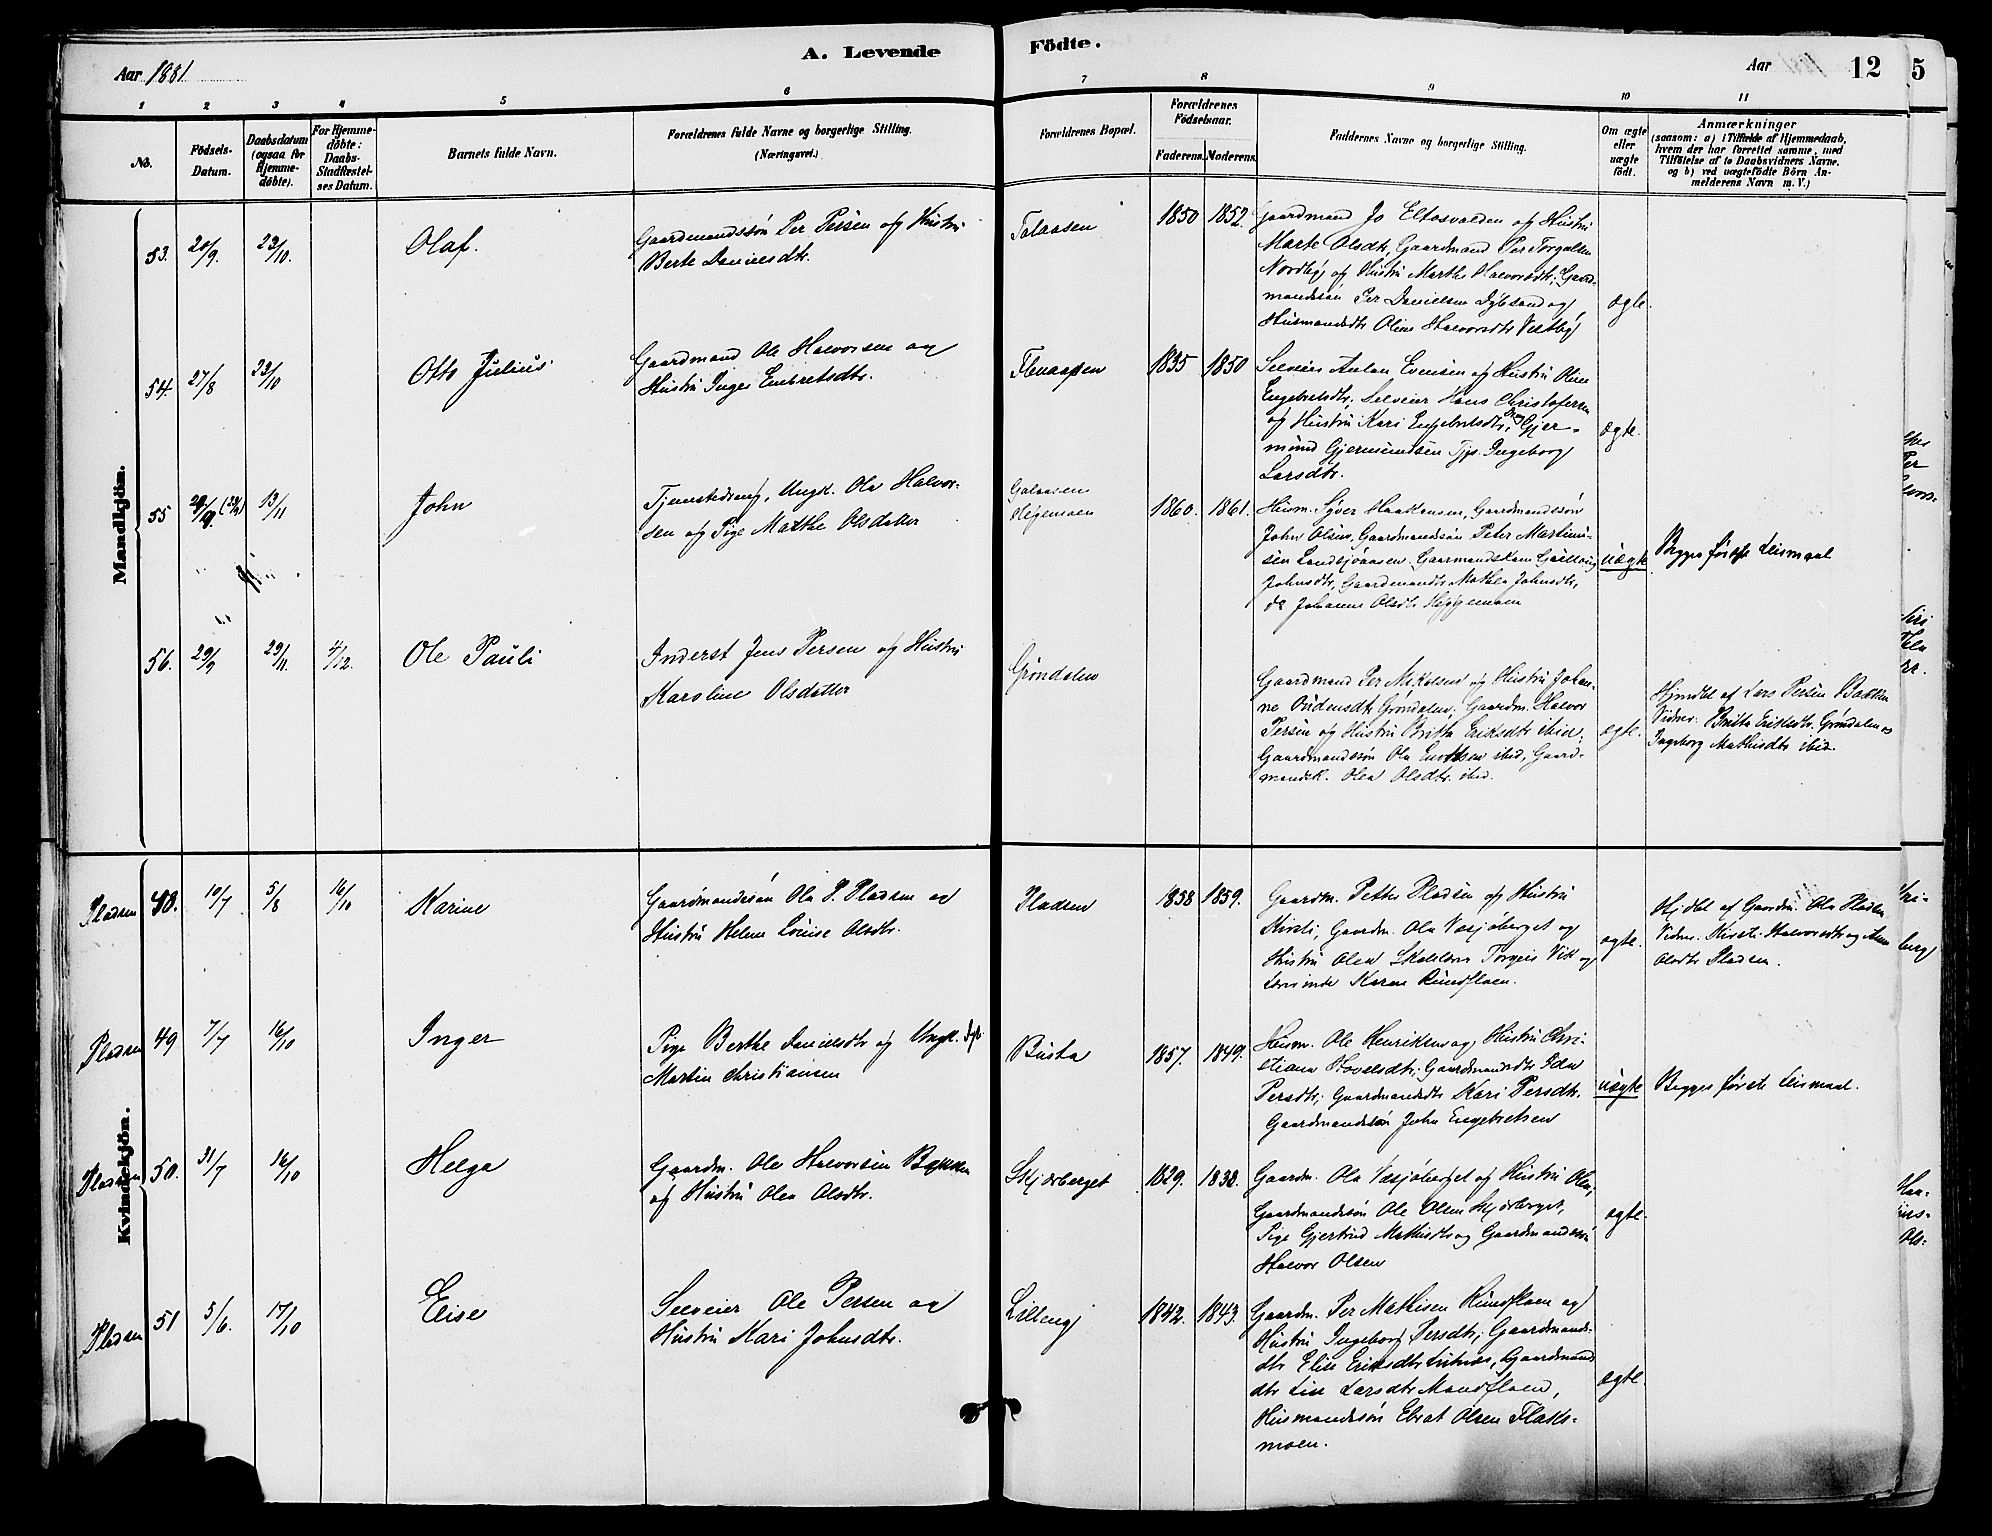 A. Levende
Födte.
Aar 1881.
Aar
12
5
1
2
3
4
5
6
7
8
9
10
11
No.
Födsels-
Datum.
Daabsdatum
(ogsaa for
Hjemme-
döbte).
For Hjemme-
döbte:
Daabs-
Stadfæstel-
ses Datum.
Barnets fulde Navn.
Forældrenes fulde Navne og borgerlige Stilling.
(Næringsvei.)
Forældrenes Bopæl.
Forældrenes
Födselsaar.
Faderens.
Moderens.
Faddernes Navne og borgerlige Stilling.
Om ægte
eller
uægte
födt.
Anmærkninger
(saasom: a) i Tilfælde af Hjemmedaab,
hvem der har forrettet samme, med
Tilföielse af to Daabsvidners Navne,
og b) ved uægtefödte Börn An-
melderens Navn m. V.)
Mandkjön.
53.
20/9.
23/10.
Olaf.
Gaardmandssön Per Persen og Hustru
Berte Danielsdtr.
1850
1852.
Gaardmand Jo Eltosvolden og Hustru
Marte Olsdtr, Gaardmand Per Torgalsen
Nordby og Hustru Marthe Halvorsdtr, Gaard-
mandssön Per Danielsen og
Husmandsdtr Oline Halvorsdtr Vestby
ægte.
54.
27/8
23/10
Otto Julius
Gaardmand Ole Halvorsen og
Hustru Inger Embretsdtr.
1835
1850
Selveier Anton Evensen og Hustru Oline
Engebretsdtr. Selveier Hans Christofersen
og Hustru Kari Engebretsdtr, Gjer-
mund Gjermundsen Tjp. Ingeborg
Larsdtr.
ægte.
55
13/11
John
Tjenestedreng, Ungk. Ole Halvor-
sen og Pige Marthe Olsdatter
1860.
1861.
Husm. Syver Haakensen, Gaardmandssön
John Olsen, Gaardmandssön Peter Martinu-
sen Landsjöaasen. Gaarmandskone
Johnsdtr, Gaardmandsdtr Mathea Johnsdtr,
do Johanne Olsdtr
uægte
Begges förste Leiermaal
56.
29/9
29/11.
4/12.
Ole Pauli
Inderst Jens Persen og Hustru
Karoline Olsdatter
Gröndalen
Gaardmand Per Mikelsen og Hustru Johan-
ne Gröndalen. Gaardm. Halvor
Persen og Hustru Britta Eriksdtr ibid.
Gaardmandssön Ola ibid, Gaard-
mandsk. Olea Olsdtr. ibid.
ægte.
Hjmdbt af Lars Persen Bakken
Vidner: Britta Eriksdtr. Gröndalen og
Ingeborg Mathisdtr ibid.
Kvindekjön.
Pladsen
48.
10/7
5/8
16/10
Karine
Gaardmandssön Ola P. Pladsen og
Hustru Helene Lovise Olsdtr.
Pladsen
1858
1859.
Gaardm. Petter Pladsen og Hustru
Kirsti, Gaardm. Ola Vasjöberget og
Hustru Olea Torgeir Vik og
Karen Rundfloen.
ægte.
Hjdbt af Gaardm. Ola Pladsen
Vidner. Kirsti Halvorsdtr og Anne
Olsdtr Pladsen.
Pladsen
49
7/7
16/10
Inger
Pige Berthe Danielsdtr og Ungk.
Martin Christiansen
Busta
1857.
1849.
Husm. Ole Henriksen og Hustru Chri-
stiane Gaardmandsdtr Ida
Persdtr; Gaardmandsdtr Kari Persdtr.
Gaardmandssön John Engebretsen
uægte
Begges förste Leiermaal.
Pladsen
50.
31/7
16/10
Helga
Gaardm. Ole Halvorsen Bakken
og Hustru Olea Olsdtr.
Skjærberget
1829.
1838.
Gaardm. Ola Vasjöberget og Hustru Olea,
Gaardmandssön Ole Olsen Skjærberget,
Pige Gjertrud Mathisdtr og Gaardmandssön
Halvor Olsen
ægte.
Pladsen
51
5/6.
17/10
Elise
Selveier Ole Persen og
Hustru Kari Johnsdtr.
Lilleng
1842.
1843.
Gaardm. Per Mathisen Rundfloen og
Hustru Ingeborg Persdtr; Gaardmands-
dtr Elise Eriksdtr Gaardmands
dtr Lise Larsdtr
Husmandssön Olsen Flaks-
moen.
ægte.